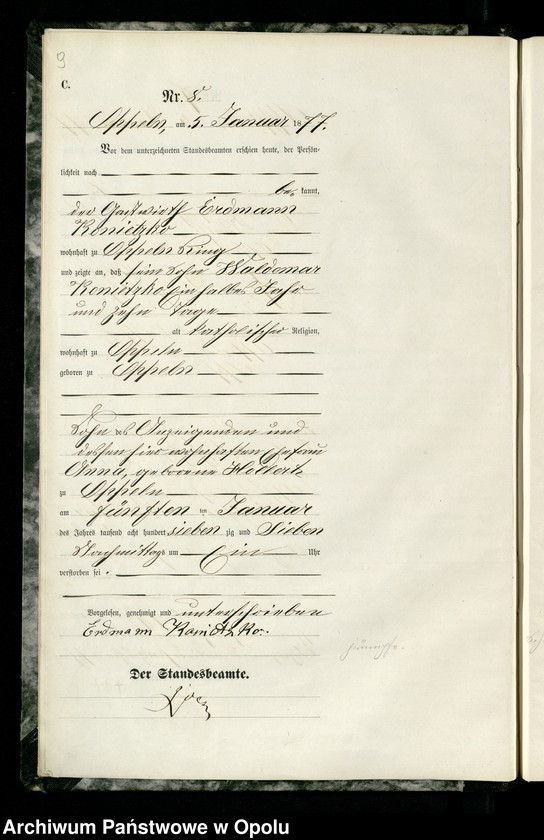 9
C.
Nr. 8.
Oppeln, am 5. Januar 1877.
Vor dem unterzeichneten Standesbeamten erschien heute, der Persön-
lichkeit nach
be kannt,
der Gastwirth Erdmann
Konietzko
wohnhaft zu Oppeln Ring
und zeigte an, daß sein Sohn Waldemar
Konietzko ein halbes Jahr
und zehn Tage
alt katholischer Religion,
wohnhaft zu Oppeln
geboren zu Oppeln
Sohn des Anzeigenden und
dessen hier wohnhaften Ehefrau
Anna, geborene
zu Oppeln
am fünften ten Januar
des Jahres tausend acht hundert sieben zig und Sieben
Nachmittags um Ein Uhr
verstorben sei.
Vorgelesen, genehmigt und unterschrieben
Erdmann Konietzko.
Der Standesbeamte.
Archiwum Państwowe w Opolu